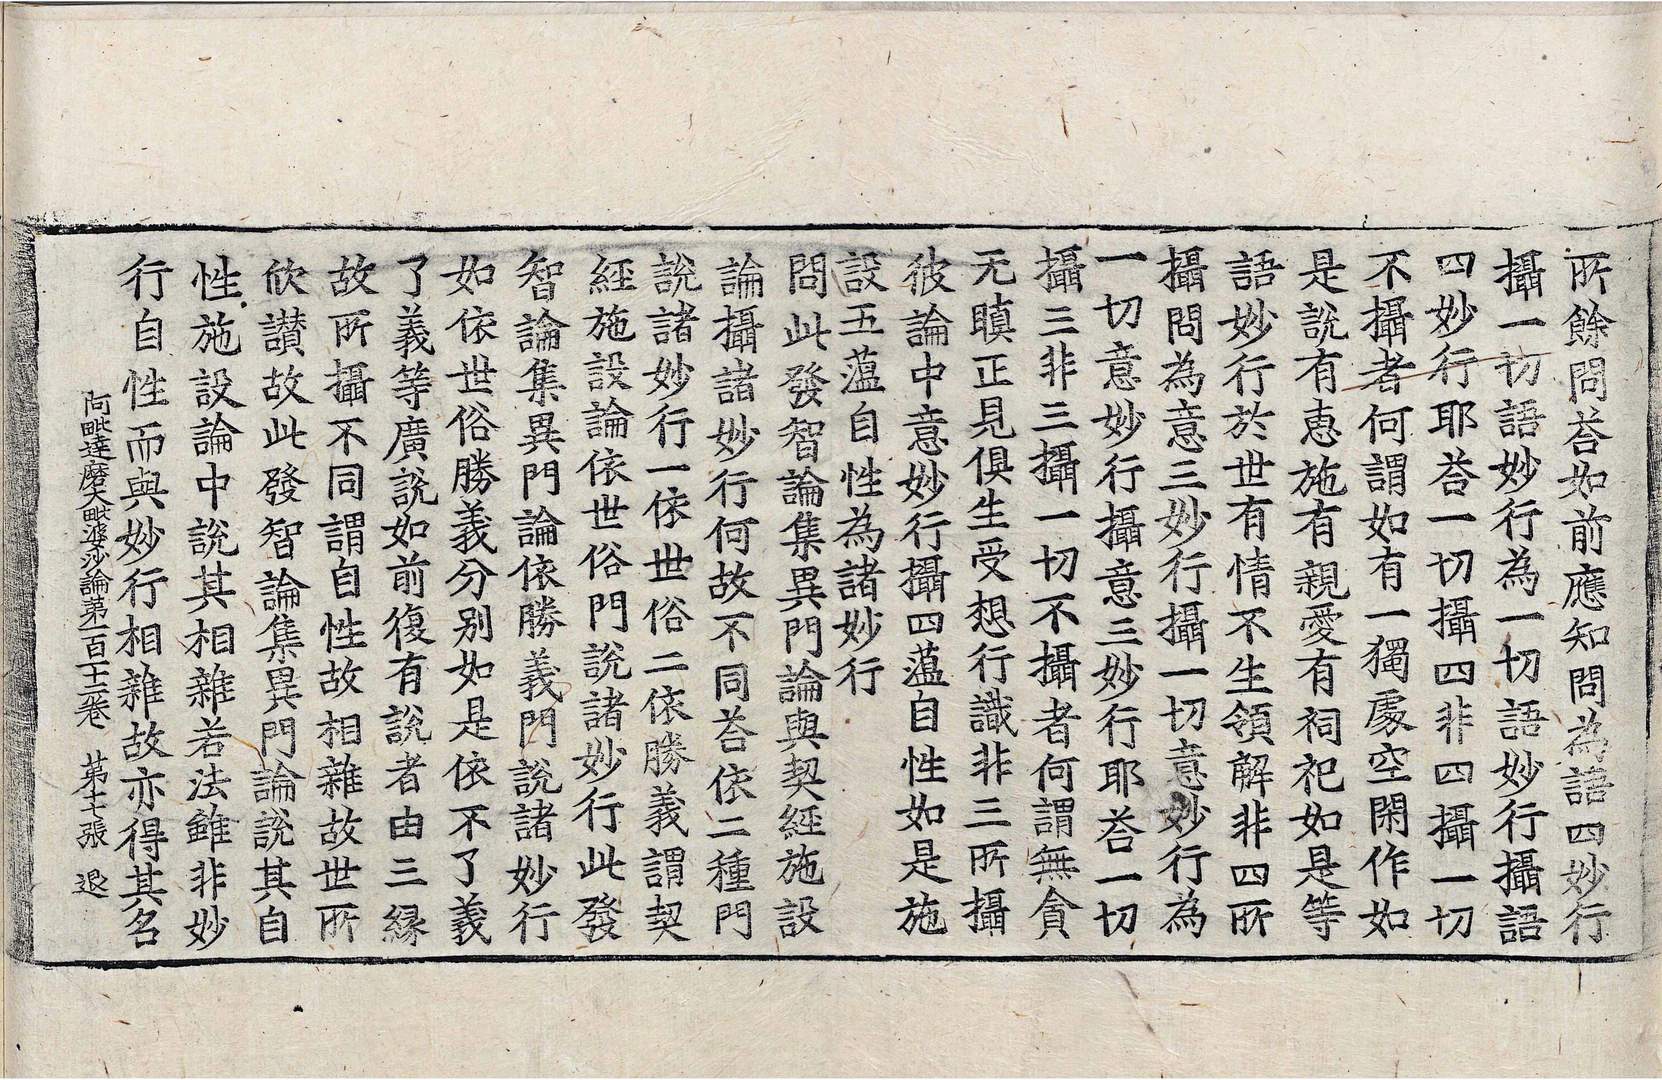 所餘問荅如前應知問為語四妙行
攝一切語妙行為一切語妙行攝語
四妙行耶荅一切攝四非四攝一切
不攝者何謂如有一獨處空閑作如
是說有惠施有親愛有祠祀如是等
語妙行於世有情不生領解非四所
攝問為意三妙行攝一切意妙行為
一切意妙行攝意三妙行耶荅一切
攝三非三攝一切不攝者何謂無貪
无瞋正見俱生受想行識非三所攝
彼論中意妙行攝四蕰自性如是施
設五蕰自性為諸妙行
問此發智論集異門論與契經施設
論攝諸妙行何故不同荅依二種門
說諸妙行一依世俗二依勝義謂契
經施設論依世俗門說諸妙行此發
智論集異門論依勝義門說諸妙行
如依世俗勝義分別如是依不了義
了義等廣說如前復有說者由三緣
故所攝不同謂自性故相雜故世所
欣讃故此發智論集異門論說其自
性施設論中說其相雜若法雖非妙
行自性而與妙行相雜故亦得其名
阿毗達磨大毗婆沙論苐一百十二卷 苐十七張 退